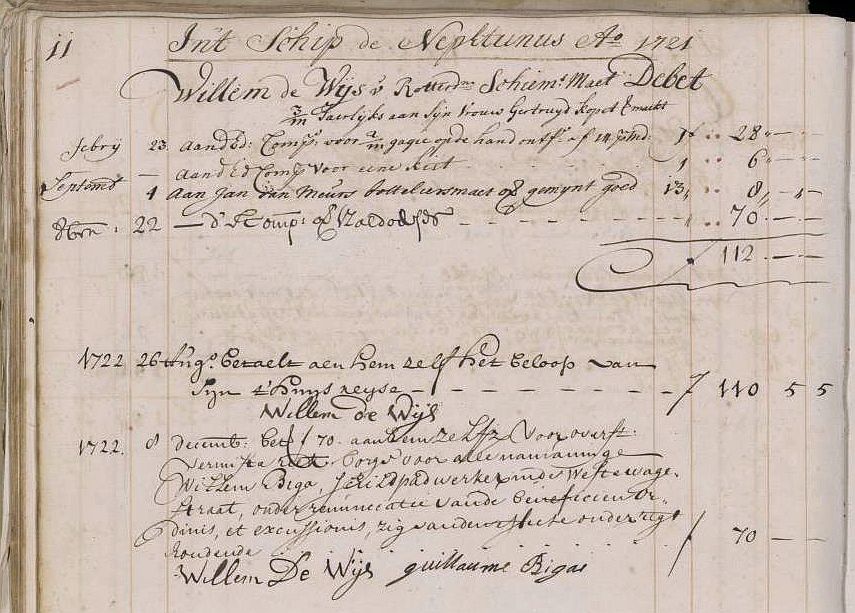 11 In't Schip de Nepltunus Ao 1721
Willem de Wijs v Rotterdm Schiems Maet Debet
3/m Jaerlijks aan Sijn Vrouw Gertruyd Kopet gemackt
febrij 23 aand Ed: Comps: voor 2/m gagie op de hand ontfs af 14 ƒ 28 — —
— aand Ed Comp voor eene kist ƒ 6 — —
Septembr 1 Aan Jan van Meurs botteliersmaet op gemynt goed 13 8 — —
22 — d'E Comp: op 70 — —
ƒ 112 — —
1722 26 Augo. betaelt aen hem zelf het beloop van
Sijn t'huys reyse — — — — — ƒ 110 5 5
Willem de Wijs
1722. 8 decemb: bet ƒ 70 aan hem zelffz voor overst:
vermiste borge voor alle namaninge
Willem Biga, Schildpadwerker inde Weste wage-
straat, onder renunciatie vande beneficien Or-
dinis, et excussionis, zig vanders onder regt
houdende ƒ 70 — —
Willem De Wijs guillaume Bigae